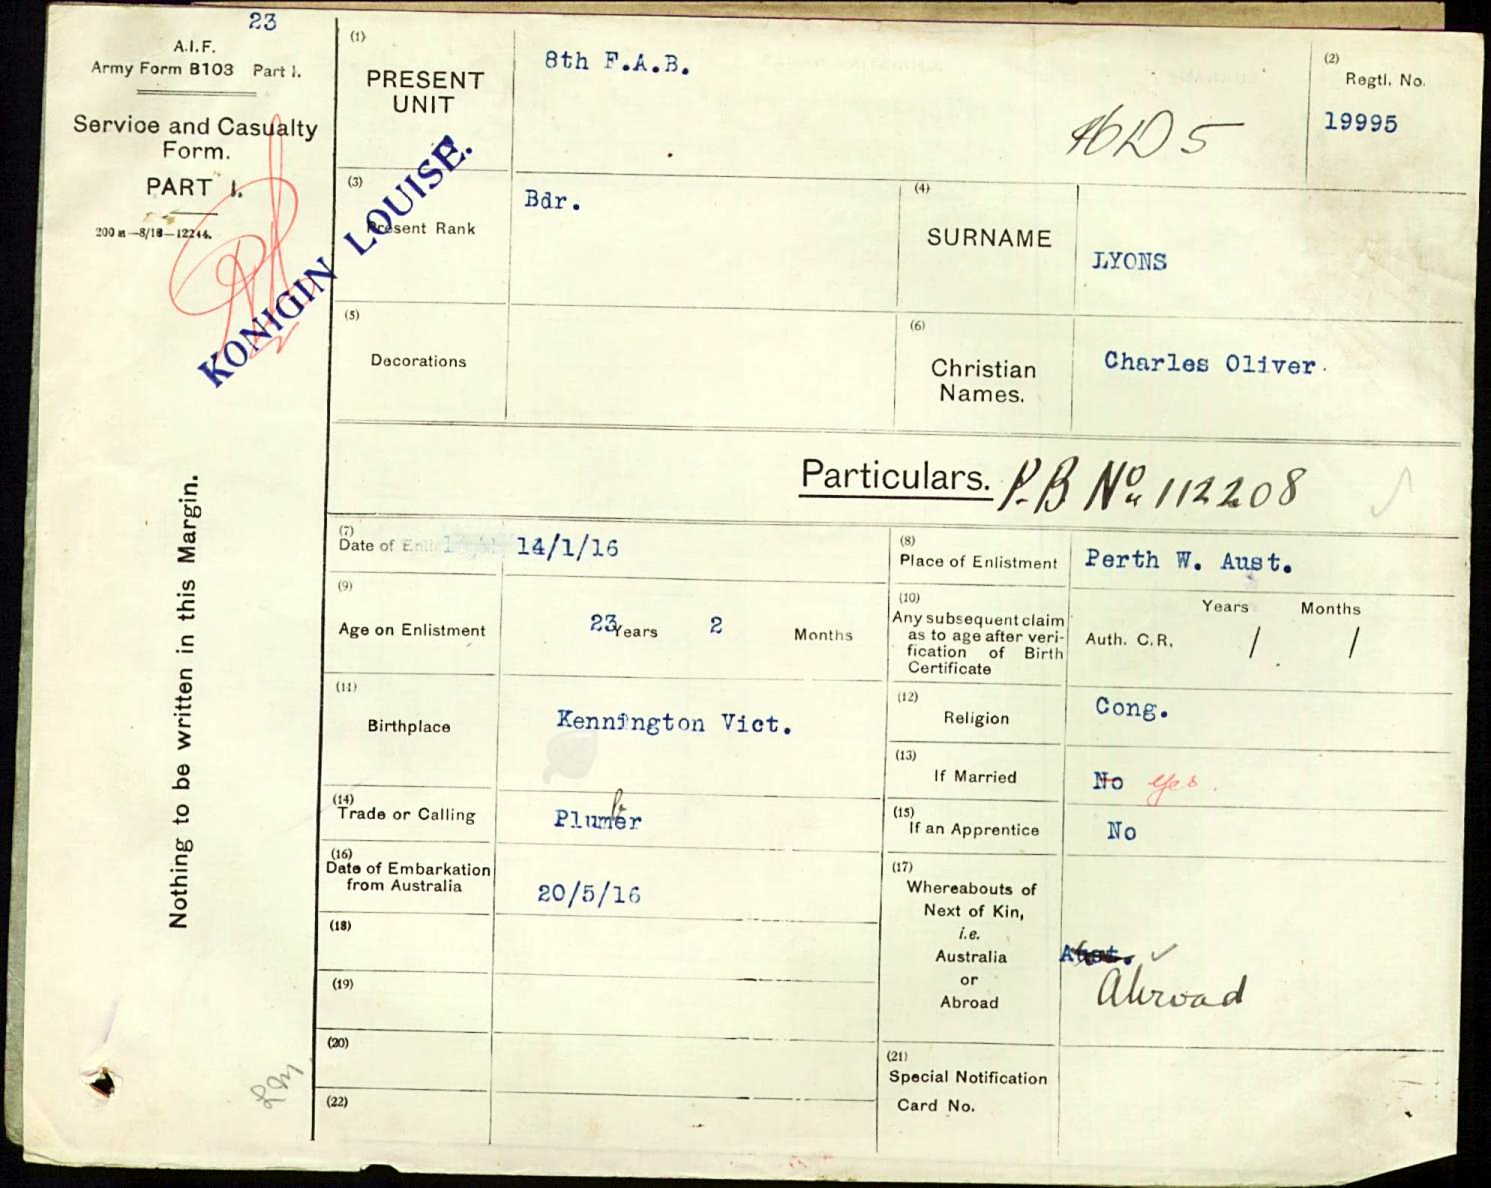 23
A.I.F.
Army Form B103 Part I.
Service and Casualty
Form.
PART I.
200 m—8/18—12244.
KONIGIN LOUISE.
Nothing to be written in this Margin.
(1)
PRESENT
UNIT
8th F.A.B.
(2)
Regtl. No.
19995
(3)
Present Rank
Bdr.
(4)
SURNAME
LYONS
(5)
Decorations
(6)
Christian
Names.
Charles Oliver.
Particulars. P.B No 112208
(7)
Date of 14/1/16
(8)
Place of Enlistment
Perth W. Aust.
(9)
Age on Enlistment
23 Years 2 Months
(10)
Any subsequent claim
as to age after veri-
fication of Birth
Certificate
Years Months
Auth. C.R. / /
(11)
Birthplace
Kennington Vict.
(12)
Religion
Cong.
(13)
If Married
No Yes.
(14)
Trade or Calling
Plumber
(15)
If an Apprentice
No
(16)
Date of Embarkation
from Australia
20/5/16
(17)
Whereabouts of
Next of Kin,
i.e.
Australia
or
Abroad
Aust.
Abroad
(18)
(19)
(20)
(21)
Special Notification
Card No.
(22)